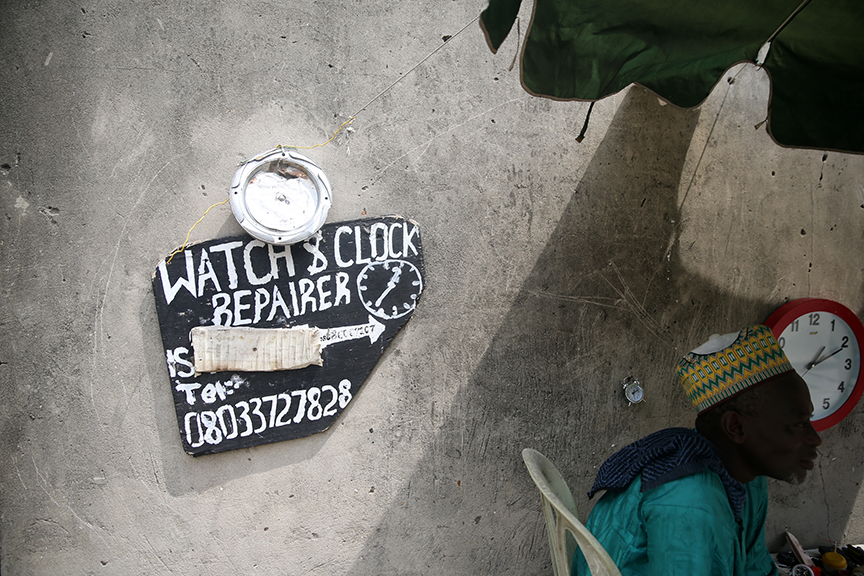 WATCH & CLOCK
REPAIRER
Tel:
08033727828
11 12 1
2
3
4
5